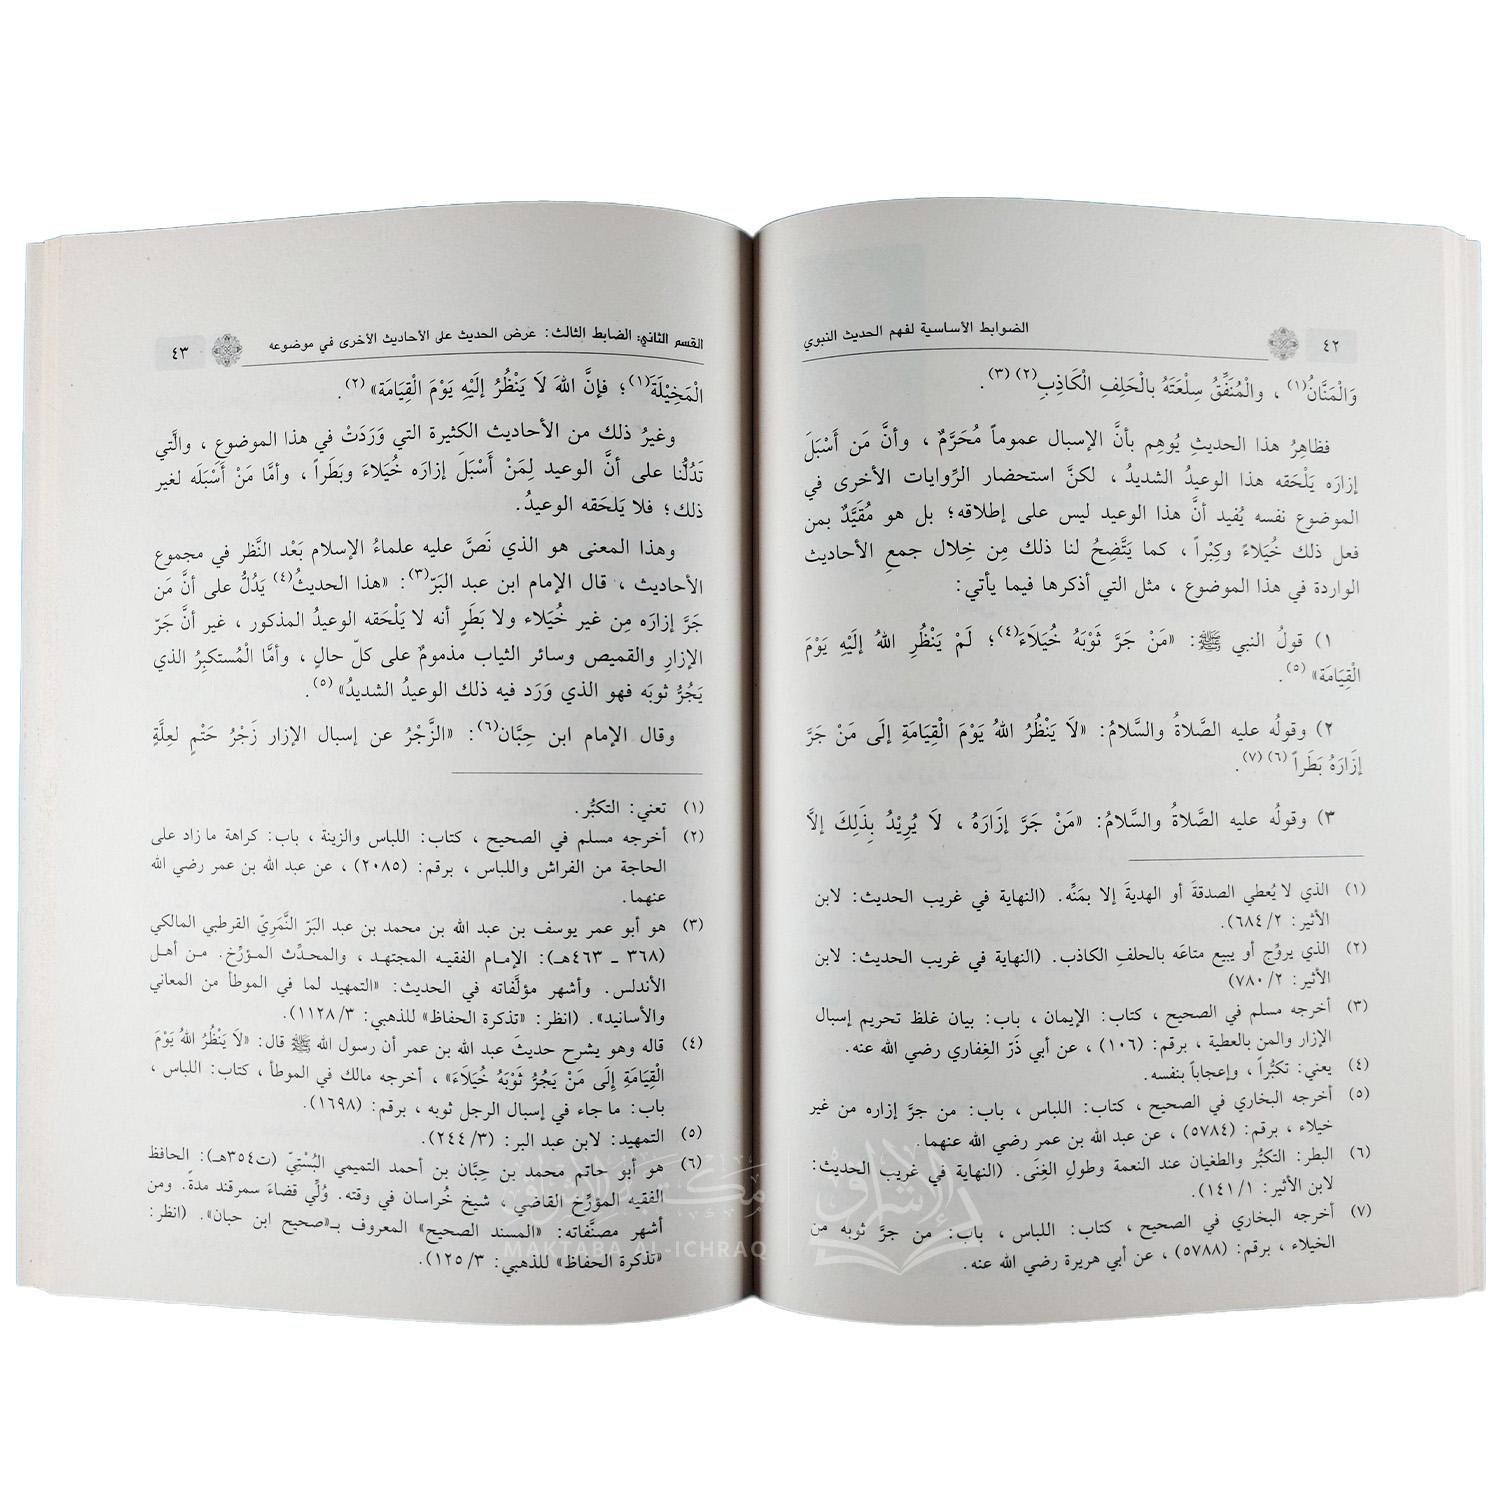 ٤٢
الضوابط الأساسية لفهم الحديث النبوي
وَالْمَنَّانُ(١) ، والْمُنَفِّقُ سِلْعَتَهُ بالْحَلِفِ الْكَاذِبِ(٢) (٣).
فظاهِرُ هذا الحديثِ يُوهِم بأنَّ الإسبال عموماً مُحَرَّمٌ ، وأنَّ مَن أَسْبَلَ
إزارَه يَلْحَقه هذا الوعيدُ الشديدُ ، لكنَّ استحضار الرِّوايات الأخرى في
الموضوع نفسه يُفيد أنَّ هذا الوعيد ليس على إطلاقه؛ بل هو مُقَيَّدٌ بمن
فعل ذلك خُيَلاءً وكِبْراً ، كما يَتَّضِحُ لنا ذلك مِن خِلال جمعِ الأحاديث
الواردة في هذا الموضوع ، مثل التي أذكرها فيما يأتي:
١) قولُ النبي ﷺ: «مَنْ جَرَّ ثَوْبَهُ خُيَلَاءَ(٤) ؛ لَمْ يَنْظُرِ اللهُ إلَيْهِ يَوْمَ
الْقِيَامَة» (٥).
٢) وقولُه عليه الصَّلاةُ والسَّلامُ: «لاَ يَنْظُرُ اللهُ يَوْمَ الْقِيَامَةِ إلَى مَنْ جَرَّ
إزَارَهُ بَطَراً (٦) (٧).
٣) وقولُه عليه الصَّلاةُ والسَّلامُ: «مَنْ جَرَّ إزَارَهُ ، لَا يُرِيْدُ بِذَلِكَ إلاَّ
(١) الذي لا يُعطي الصدقةَ أو الهديةَ إلا بمَنِّه. (النهاية في غريب الحديث: لابن
الأثير: ٢/ ٦٨٤).
(٢) الذي يروِّج أو يبيع متاعَه بالحلفِ الكاذب. (النهاية في غريب الحديث: لابن
الأثير: ٢/ ٧٨٠)
(٣) أخرجه مسلم في الصحيح ، كتاب: الإيمان ، باب: بيان غلظ تحريم إسبال
الإزار والمن بالعطية ، برقم: (١٠٦) ، عن أبي ذَرّ الغِفاري رضي الله عنه.
(٤) يعني: تكبُّراً ، وإعجاباً بنفسه.
(٥) أخرجه البخاري في الصحيح ، كتاب: اللباس ، باب: من جرَّ إزاره من غير
خيلاء ، برقم: (٥٧٨٤) ، عن عبد الله بن عمر رضي الله عنهما.
(٦) البطر: التكبُّر والطغيان عند النعمة وطولِ الغِنَى. (النهاية في غريب الحديث:
لابن الأثير: ١/ ١٤١).
(٧) أخرجه البخاري في الصحيح ، كتاب: اللباس ، باب: من جرَّ ثوبه من
الخيلاء ، برقم: (٥٧٨٨) ، عن أبي هريرة رضي الله عنه.
القسم الثاني: الضابط الثالث: عرض الحديث على الأحاديث الأخرى في موضوعه
٤٣
الْمَخِيْلَةَ(١) ؛ فإنَّ اللهَ لَا يَنْظُرُ إلَيْهِ يَوْمَ الْقِيَامَة» (٢).
وغيرُ ذلك من الأحاديث الكثيرة التي وَرَدَتْ في هذا الموضوع ، والَّتي
تَدُلُّنا على أنَّ الوعيد لِمَنْ أَسْبَلَ إزارَه خُيَلاءَ وبَطَراً ، وأمَّا مَنْ أَسْبَلَه لغير
ذلك؛ فلا يَلحَقه الوعيدُ.
وهذا المعنى هو الذي نَصَّ عليه علماءُ الإسلام بَعْد النَّظر في مجموع
الأحاديث ، قال الإمام ابن عبد البَرّ(٣): «هذا الحديثُ(٤) يَدُلُّ على أنَّ مَن
جَرَّ إزارَه مِن غير خُيَلاء ولا بَطَرٍ أنه لا يَلْحَقه الوعيدُ المذكور ، غير أنَّ جَرّ
الإزارِ والقميص وسائر الثياب مذمومٌ على كلّ حالٍ ، وأمَّا الْمُستكبِرُ الذي
يَجُرُّ ثوبَه فهو الذي وَرَد فيه ذلك الوعيدُ الشديدُ» (٥).
وقال الإمام ابن حِبَّان(٦): «الزَّجْرُ عن إسبال الإزار زَجْرُ حَتْمٍ لعِلَّةٍ
(١) تعني: التكبُّر.
(٢) أخرجه مسلم في الصحيح ، كتاب: اللباس والزينة ، باب: كراهة ما زاد على
الحاجة من الفراش واللباس ، برقم: (٢٠٨٥) ، عن عبد الله بن عمر رضي الله
عنهما.
(٣) هو أبو عمر يوسف بن عبد الله بن محمد بن عبد البَرّ النَّمَرِيّ القرطبي المالكي
(٣٦٨ ـ ٤٦٣هـ): الإمـام الفقيـه المجتهـد ، والمحدِّث المـؤرِّخ. مـن أهـل
الأندلس. وأشهر مؤلَّفاته في الحديث: «التمهيد لما في الموطأ من المعاني
والأسانيد». (انظر: «تذكرة الحفاظ» للذهبي: ٣/ ١١٢٨).
(٤) قاله وهو يشرح حديثَ عبد الله بن عمر أن رسول الله ﷺ قال: «لاَ يَنْظُرُ اللهُ يَوْمَ
الْقِيَامَةِ إلَى مَنْ يَجُرُّ ثَوْبَهُ خُيَلَاءَ» ، أخرجه مالك في الموطأ ، كتاب: اللباس ،
باب: ما جاء في إسبال الرجل ثوبه ، برقم: (١٦٩٨).
(٥) التمهيد: لابن عبد البر: (٣/ ٢٤٤).
(٦) هو أبو حاتم محمد بن حِبَّان بن أحمد التميمي البُسْتِيّ (ت٣٥٤هـ): الحافظ
الفقيه المؤرِّخ القاضي ، شيخ خُراسان في وقته. وُلِّي قضاءَ سمرقند مدةً. ومن
أشهر مصنَّفاته: «المسند الصحيح» المعروف بـ«صحيح ابن حبان». (انظر:
«تذكرة الحفاظ» للذهبي: ٣/ ١٢٥).
مكتبة الإشراق
MAKTABA AL-ICHRAQ
الإشراق